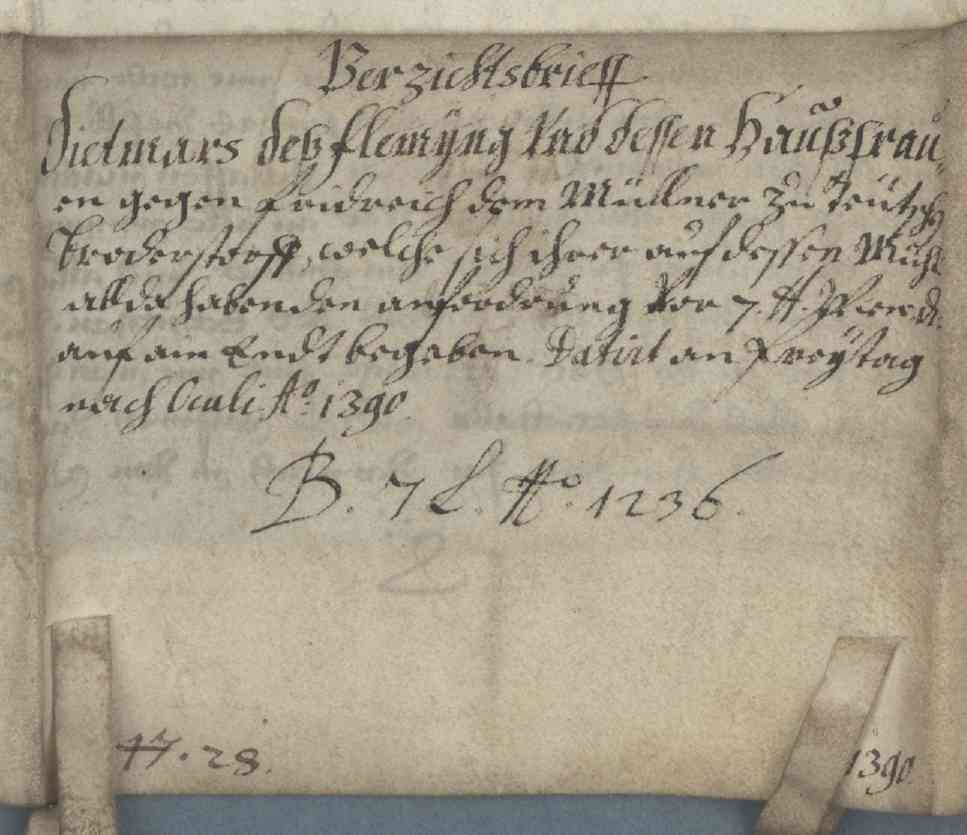 Verzichtsbrieff
Dietmars deß flemÿng Und dessen Haußfrau,
en gegen Fridreich dem Müllner zu Teütsch
Broderstorff, welche sich ihrer auf dessen Mühl
allda habenden anforderung vor 7. ℔. Wien. d.
auf ain Endt begeben. Datirt an Freÿtag
nach Oculi Ao. 1390.
B. 7 L. No. 1236.
2
17. 28.
1390